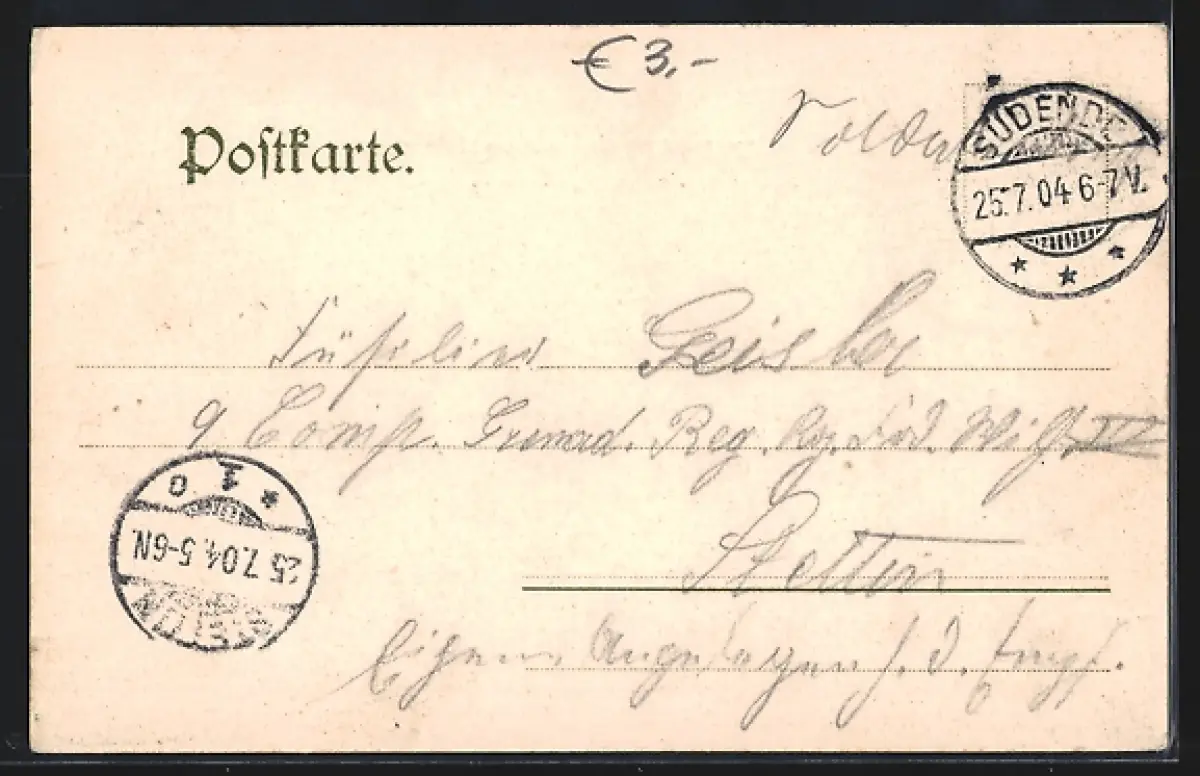 € 3,-
Postkarte.
SÜDENDE
25.7.04 6-7V.
Füsilier Geisler
9 Comp. Grenad. Reg. Kg. Frd. Wilh. IV
Stettin
STETTIN
25.7.04. 5-6N.
* 1 o
Eigene Angelegen. d. Empf.